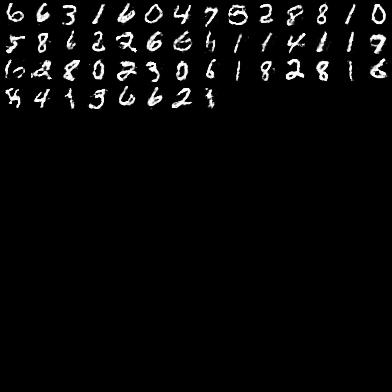 6 6 3 1 6 0 4 7 5 2 8 8 1 0
5 8 6 2 2 6 6 1 1 4 1 1 9
2 8 0 2 3 0 6 1 8 2 8 1 6
4 1 3 6 6 2 1